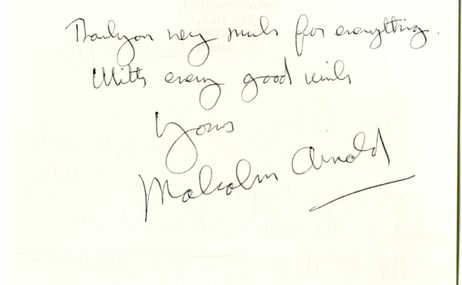 Thankyou very much for everything.
With every good wish
Yours
Malcolm Arnold